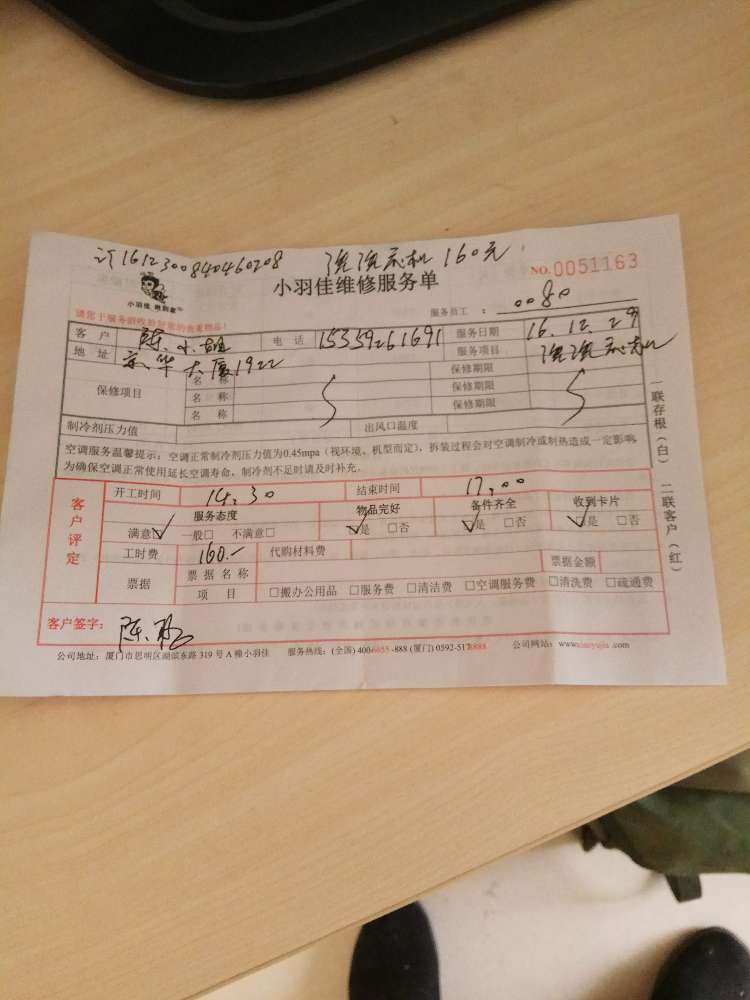 订1612300840460208 洗洗衣机 160元
小羽佳 跑到家
小羽佳维修服务单
NO.0051163
服务员工 : 0080
客户 陈小姐 电话 15359261691 服务日期 16.12.29
地址 京华大厦1922 服务项目 洗洗衣机
保修项目
名称 保修期限
名称 保修期限
名称 保修期限
制冷剂压力值 出风口温度
空调服务温馨提示:空调正常制冷剂压力值为0.45mpa(视环境、机型而定),拆装过程会对空调制冷或制热造成一定影响,
为确保空调正常使用延长空调寿命,制冷剂不足时请及时补充。
一联存根(白) 二联客户(红)
客户评定
开工时间 14.30 结束时间 17.00
服务态度 物品完好 备件齐全 收到卡片
满意☑ 一般□ 不满意□ ☑是 □否 ☑是 □否 ☑是 □否
工时费 160.- 代购材料费
票据 票据名称 票据金额
项目 □搬办公用品 □服务费 □清洁费 □空调服务费 □清洗费 □疏通费
客户签字: 陈
公司地址:厦门市思明区湖滨东路 319 号 A 幢小羽佳 服务热线:(全国) 4006655-888 (厦门) 0592-5178888 公司网站:www.xiaoyujia.com